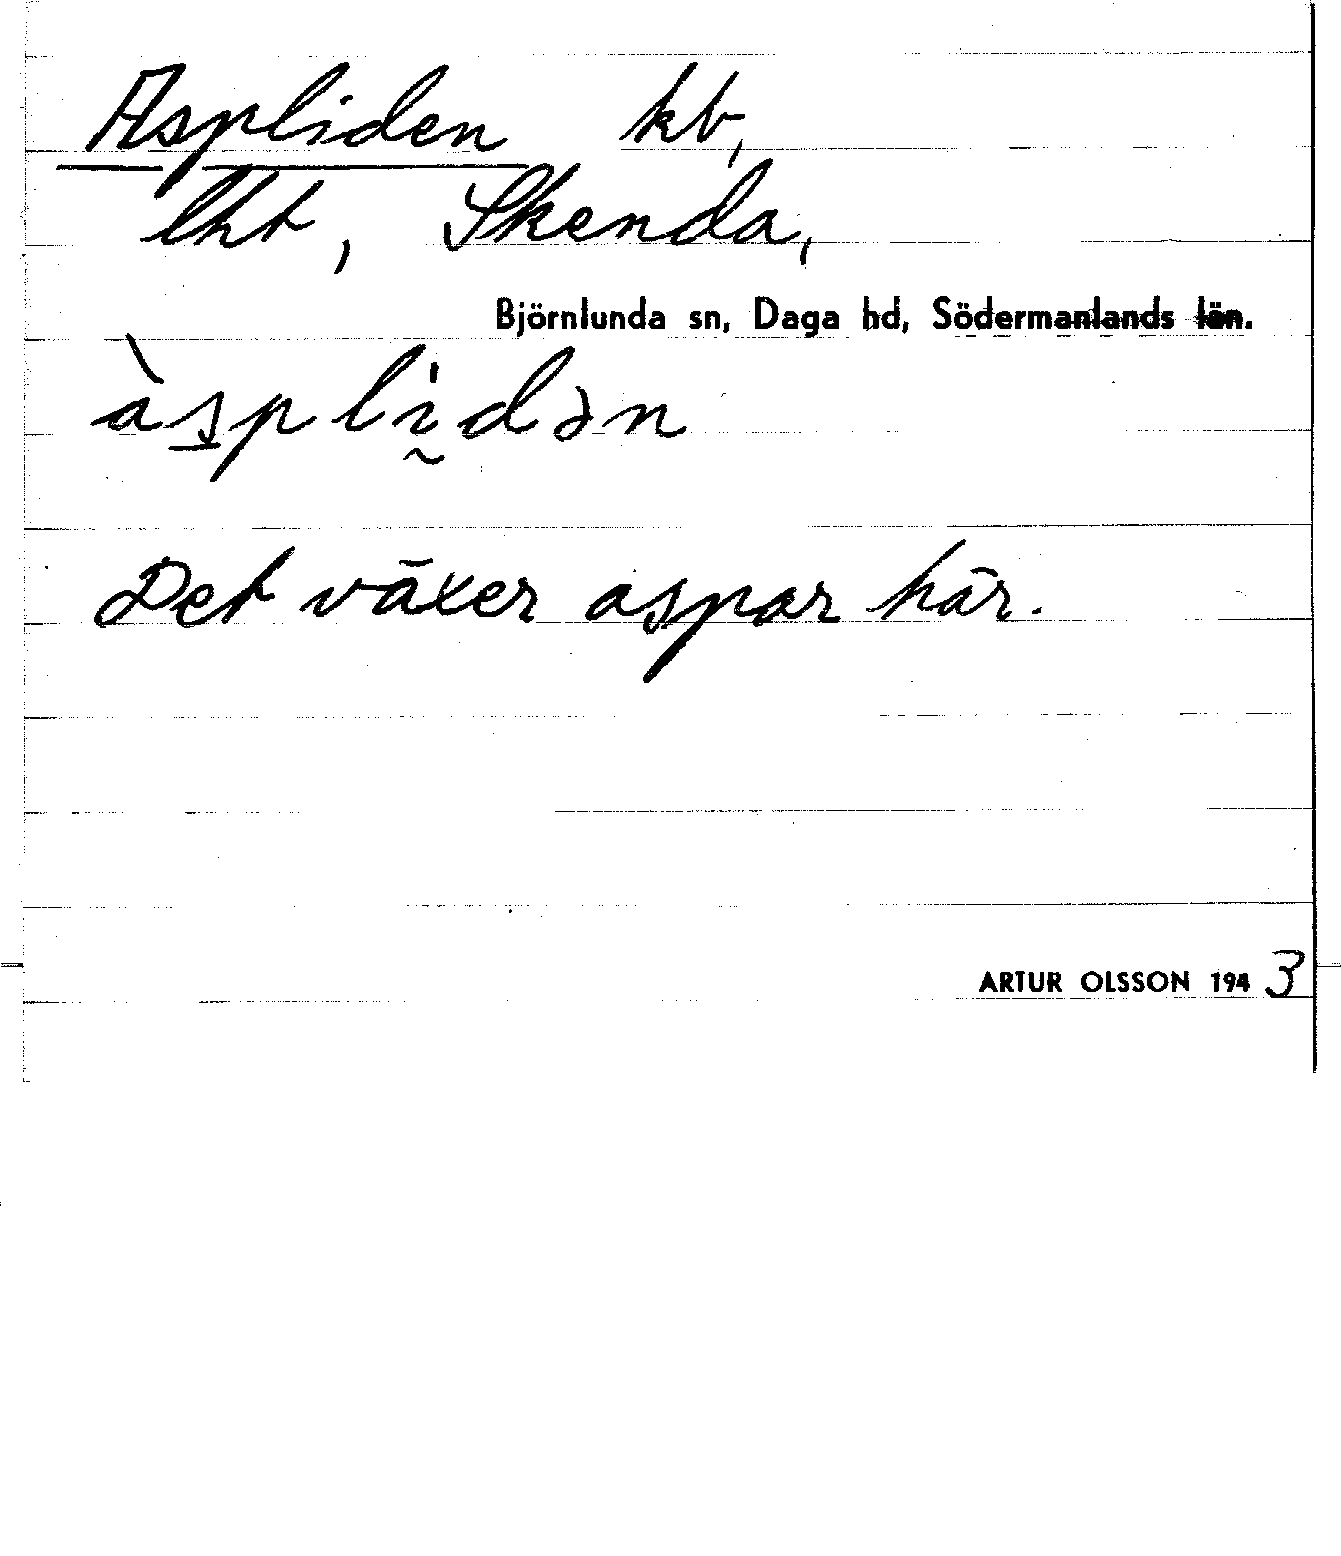 Aspliden kb,
lht, Skenda,
Björnlunda sn, Daga hd, Södermanlands län.
àsplḭdən
Det växer aspar här.
ARTUR OLSSON 1943